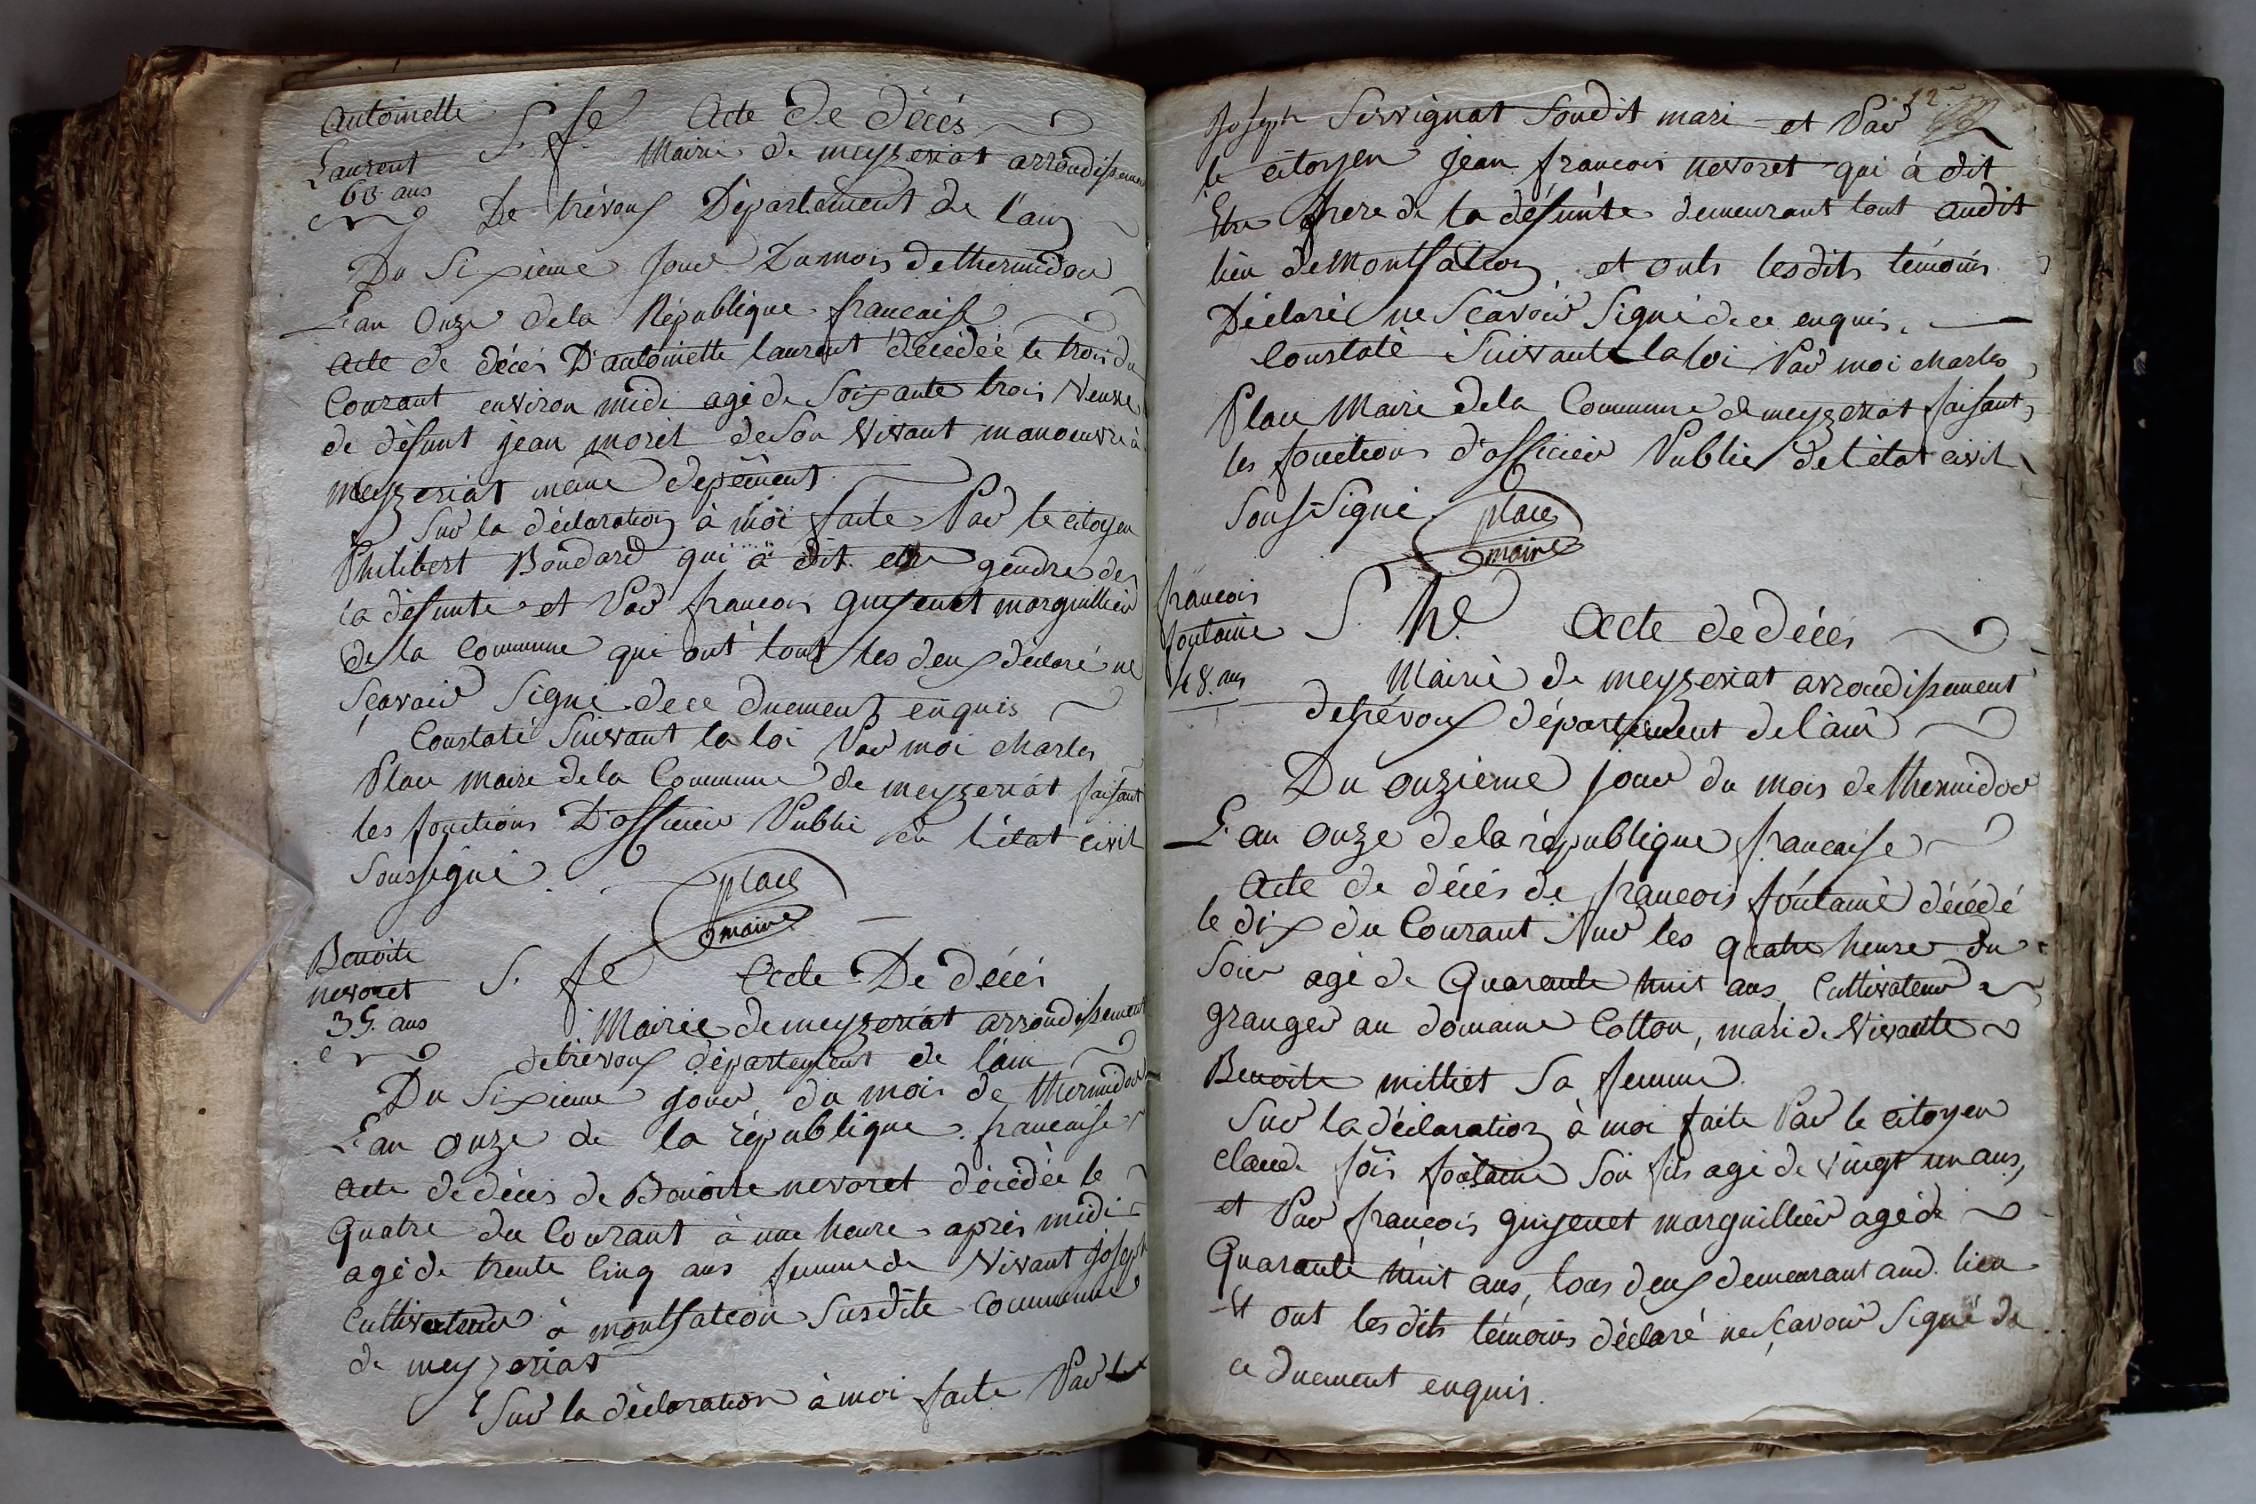 Antoinette
Laurent
63 ans
S. fe Acte De décés
Mairie de meyzeriat arrondissement
De trévoux Département de l'ain
Du Sixieme Jour Du mois de thermidor
L'an Onze de la République francaise
Acte de décés D'antoinette laurent décédée le trois du
Courant environ midi agé de Soixante trois Veuve
de défunt jean morel de Son Vivant manoeuvre à
meyzeriat même depément
Sur la déclaration à moi faite Par le citoyen
Philibert Boudard qui à dit etre gendre de
la défunte et Par francois guyenet marguillier
de la Commune qui ont tout les deux déclaré ne
Sçavoir Signé de ce duement enquis
Constaté Suivant la loi Par moi charles
Place Maire de la Commune de meyzeriat faisant
les fonctions D'officier Public de l'état civil
Soussigné.
place
maire
Benoite
nevoret
35. ans
S. fe Acte De décés
Mairie de meyzeriat arrondissement
de trévoux département de l'ain
Du Sixieme jour du mois de thermidor
L'an onze de la république francaise
Acte de décés de Benoite nevoret décédée le
Quatre du Courant à une heure après midi
agé de trente Cinq ans femme de Vivant Joseph
Cultivateur à montfalcon Susdite Commune
de meyzeriat
Sur la déclaration à moi faite Par Le
12
Joseph Servignat Soudit mari et Par
le citoyen jean francois nevoret qui à dit
Etre frere de la défunte demeurant tout audit
lieu de Montfalcon et onts lesdits témoins
Déclaré ne Scavoir Signé de ce enquis.
Constaté Suivante la loi Par moi charles
Place Maire de la Commune de meyzeriat faisant
les fonctions d'officier Public de l'état civil
Sous-Signé
place
maire
francois
fontaine
48. ans
S. he. Acte de décés
Mairie de meyzeriat arrondissement
de trévoux département de l'ain
Du onzieme jour du mois de thermidor
L'an onze de la république francaise
Acte de décés de francois fontaine décédé
le dix du Courant Sur les quatre heures du
Soir agé de Quarante huit ans Cultivateur
granger au domaine Cotton, mari de Vivante
Benoite milliet Sa femme.
Sur la déclaration à moi faite Par le citoyen
claude fois fontaine Son fils agé de vingt un ans,
et Par francois guyenet marguillier agé de
Quarante huit ans, tous deux demeurant aud. lieu
Et ont les dits témoins déclaré ne sçavoir Signé de
ce duement enquis.